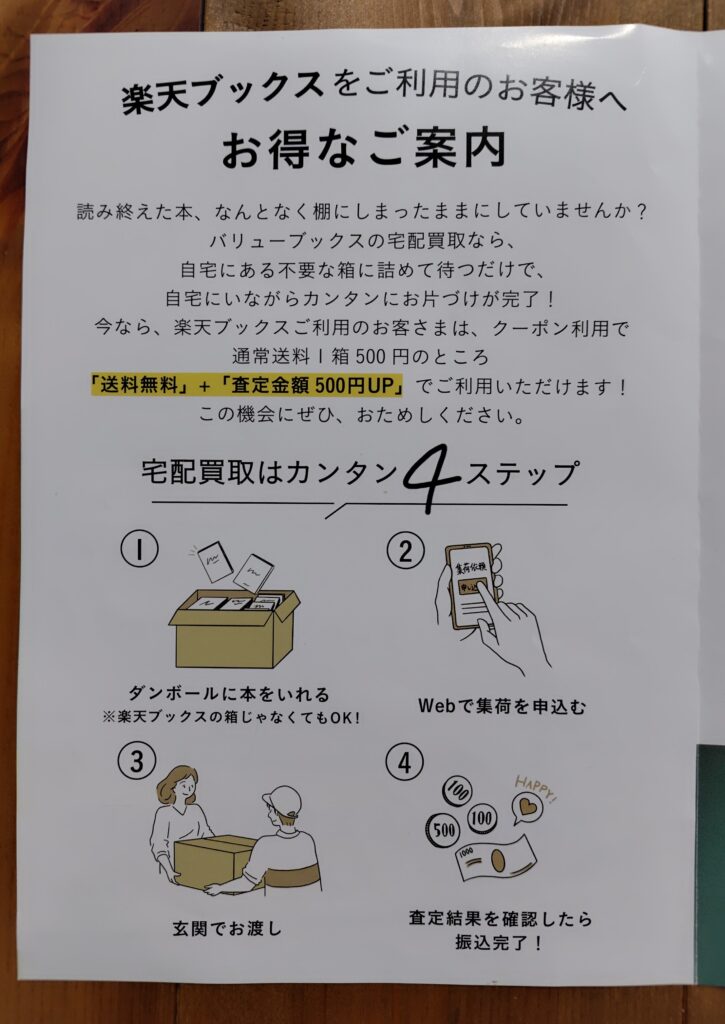 楽天ブックスをご利用のお客様へ
お得なご案内
読み終えた本、なんとなく棚にしまったままにしていませんか？
バリューブックスの宅配買取なら、
自宅にある不要な箱に詰めて待つだけで、
自宅にいながらカンタンにお片づけが完了！
今なら、楽天ブックスご利用のお客さまは、クーポン利用で
通常送料1箱500円のところ
「送料無料」+「査定金額500円UP」でご利用いただけます！
この機会にぜひ、おためしください。
宅配買取はカンタン4ステップ
①
ダンボールに本をいれる
※楽天ブックスの箱じゃなくてもOK！
②
集荷依頼
申し込む
Webで集荷を申込む
③
玄関でお渡し
④
HAPPY!
100
500
100
1000
査定結果を確認したら
振込完了！